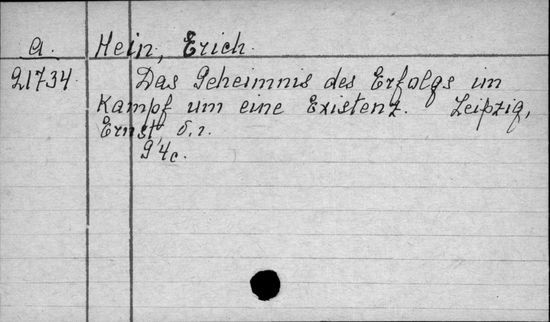 a. Hein, Erich.
21734. Das Geheimnis des Erfolgs im
Kampf um eine Existenz. Leipzig,
Ernst, б.г.
94с.